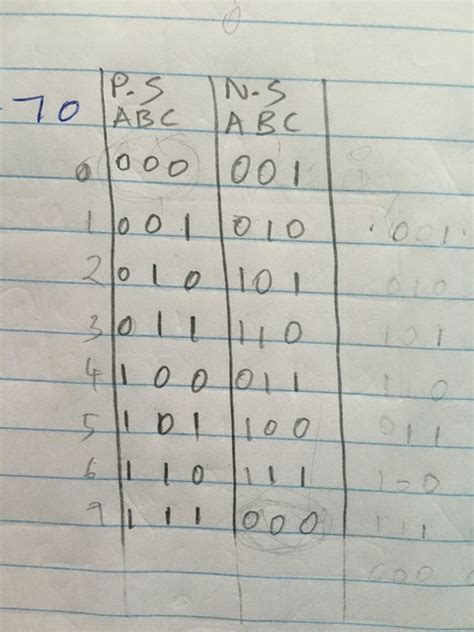 0
P.S N.S
70 ABC ABC
0 000 001
1 001 010 001
2 010 101 010
3 011 110 101
4 100 011 110
5 101 100 011
6 110 111 100
7 111 000 111
000